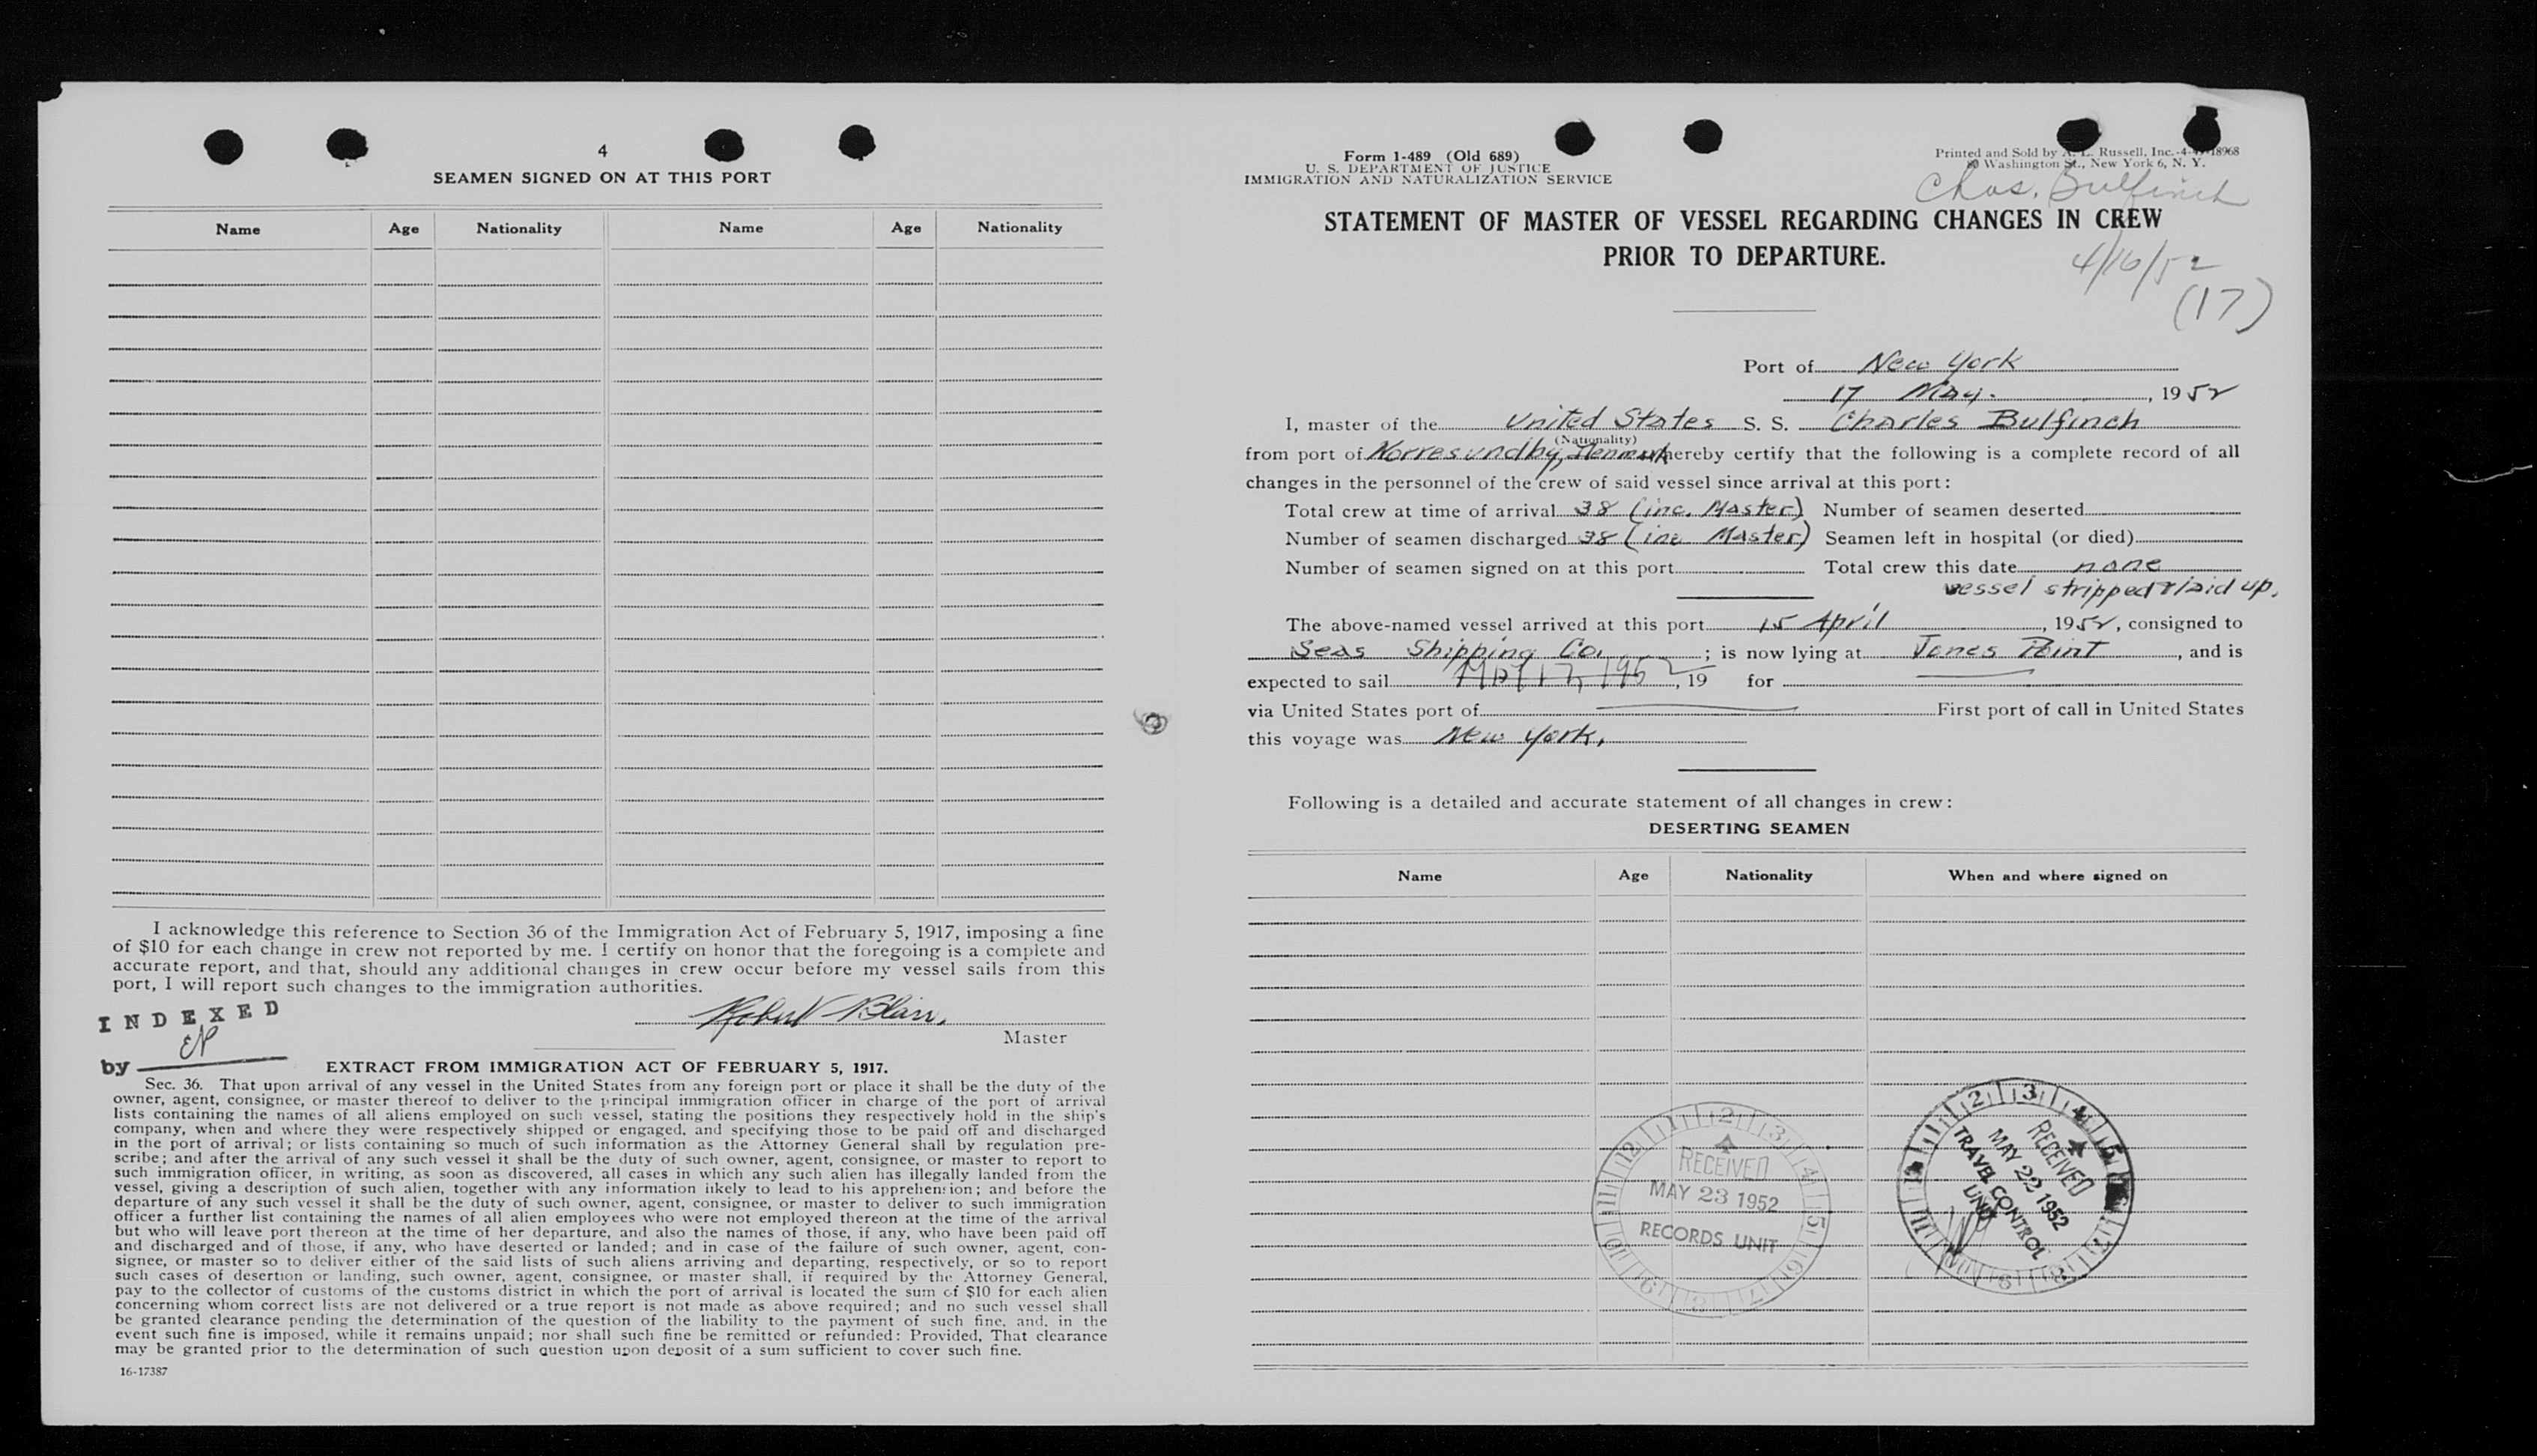 4
SEAMEN SIGNED ON AT THIS PORT
Name Age Nationality Name Age Nationality
I acknowledge this reference to Section 36 of the Immigration Act of February 5, 1917, imposing a fine
of $10 for each change in crew not reported by me. I certify on honor that the foregoing is a complete and
accurate report, and that, should any additional changes in crew occur before my vessel sails from this
port, I will report such changes to the immigration authorities.
INDEXED
by
Robert Blair.
Master
EXTRACT FROM IMMIGRATION ACT OF FEBRUARY 5, 1917.
Sec. 36. That upon arrival of any vessel in the United States from any foreign port or place it shall be the duty of the
owner, agent, consignee, or master thereof to deliver to the principal immigration officer in charge of the port of arrival
lists containing the names of all aliens employed on such vessel, stating the positions they respectively hold in the ship's
company, when and where they were respectively shipped or engaged, and specifying those to be paid off and discharged
in the port of arrival; or lists containing so much of such information as the Attorney General shall by regulation pre-
scribe; and after the arrival of any such vessel it shall be the duty of such owner, agent, consignee, or master to report to
such immigration officer, in writing, as soon as discovered, all cases in which any such alien has illegally landed from the
vessel, giving a description of such alien, together with any information likely to lead to his apprehension; and before the
departure of any such vessel it shall be the duty of such owner, agent, consignee, or master to deliver to such immigration
officer a further list containing the names of all alien employees who were not employed thereon at the time of the arrival
but who will leave port thereon at the time of her departure, and also the names of those, if any, who have been paid off
and discharged and of those, if any, who have deserted or landed; and in case of the failure of such owner, agent, con-
signee, or master so to deliver either of the said lists of such aliens arriving and departing, respectively, or so to report
such cases of desertion or landing, such owner, agent, consignee, or master shall, if required by the Attorney General,
pay to the collector of customs of the customs district in which the port of arrival is located the sum of $10 for each alien
concerning whom correct lists are not delivered or a true report is not made as above required; and no such vessel shall
be granted clearance pending the determination of the question of the liability to the payment of such fine, and, in the
event such fine is imposed, while it remains unpaid; nor shall such fine be remitted or refunded: Provided, That clearance
may be granted prior to the determination of such question upon deposit of a sum sufficient to cover such fine.
16-17387
Form 1-489 (Old 689)
U. S. DEPARTMENT OF JUSTICE
IMMIGRATION AND NATURALIZATION SERVICE
Printed and Sold by Russell, Inc. 18968
Washington St., New York 6, N. Y.
Chas. Bulfinch
STATEMENT OF MASTER OF VESSEL REGARDING CHANGES IN CREW
PRIOR TO DEPARTURE.
4/16/52
(17)
Port of New York
17 May. , 1952
I, master of the United States S. S. Charles Bulfinch
(Nationality)
from port of Norresundby, Denmark hereby certify that the following is a complete record of all
changes in the personnel of the crew of said vessel since arrival at this port:
Total crew at time of arrival 38 (inc. Master) Number of seamen deserted
Number of seamen discharged 38 (inc Master) Seamen left in hospital (or died)
Number of seamen signed on at this port Total crew this date none
vessel stripped & laid up.
The above-named vessel arrived at this port 15 April , 1952, consigned to
Seas Shipping Co. ; is now lying at Jones Point , and is
expected to sail , 19 for
via United States port of First port of call in United States
this voyage was New York.
Following is a detailed and accurate statement of all changes in crew:
DESERTING SEAMEN
Name Age Nationality When and where signed on
RECEIVED
MAY 23 1952
RECORDS UNIT
RECEIVED
MAY 22 1952
TRAVEL CONTROL
UNIT